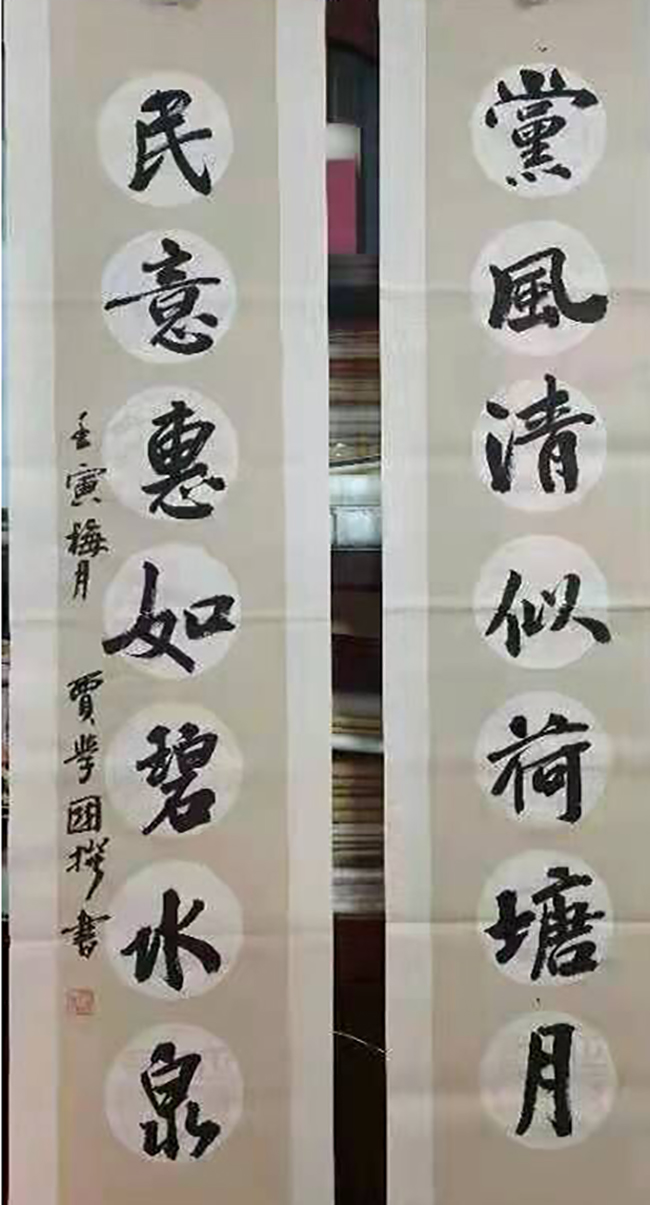 黨風清似荷塘月
民意惠如碧水泉
壬寅梅月
賈學國撰書